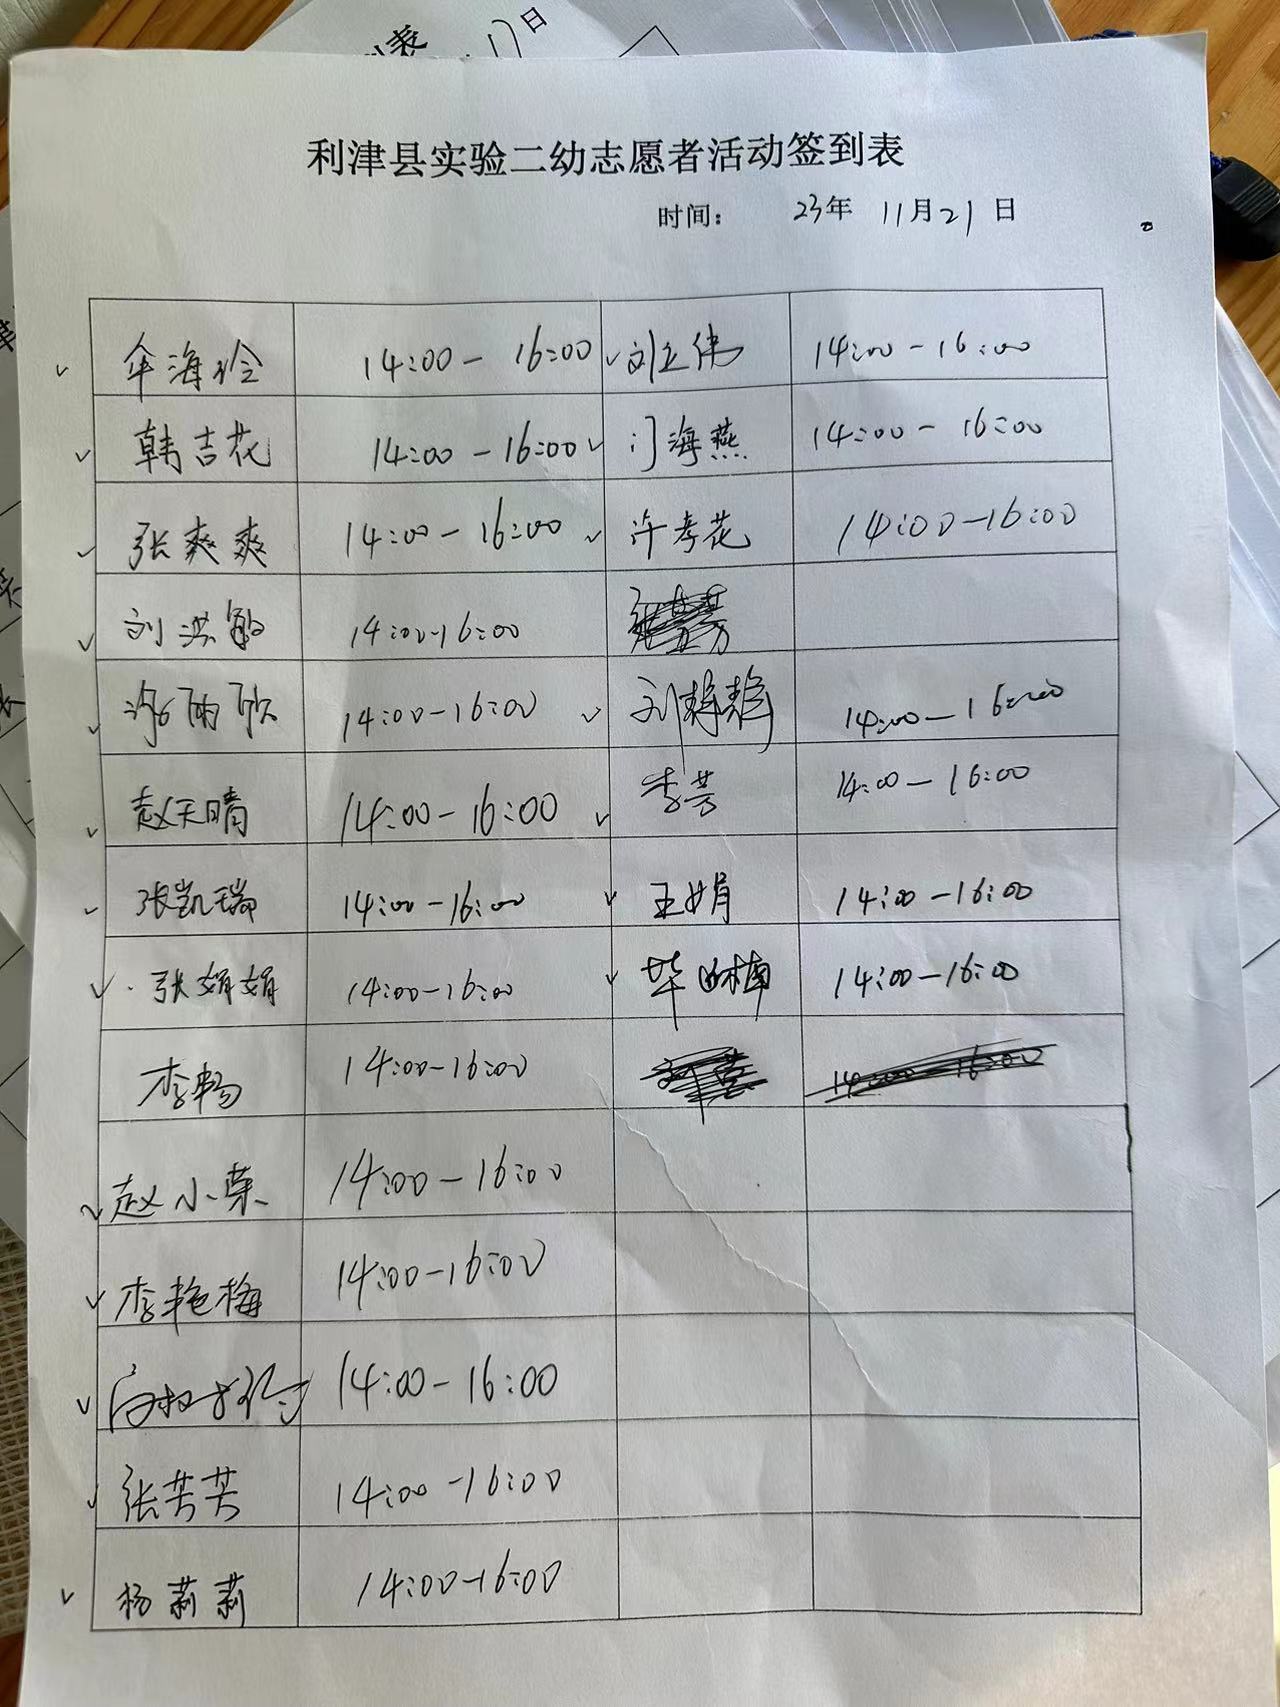 利津县实验二幼志愿者活动签到表
时间: 23年 11月21日
伞海玲 14:00-16:00 刘立伟 14:00-16:00
韩吉花 14:00-16:00 门海燕 14:00-16:00
张爽爽 14:00-16:00 许孝花 14:00-16:00
刘洪敏 14:00-16:00
14:00-16:00 刘静静 14:00-16:00
赵天晴 14:00-16:00 李芸 14:00-16:00
张凯瑞 14:00-16:00 王娟 14:00-16:00
张娟娟 14:00-16:00 14:00-16:00
李畅 14:00-16:00 14:00-16:00
赵小荣 14:00-16:00
李艳梅 14:00-16:00
14:00-16:00
张芳芳 14:00-16:00
杨莉莉 14:00-16:00